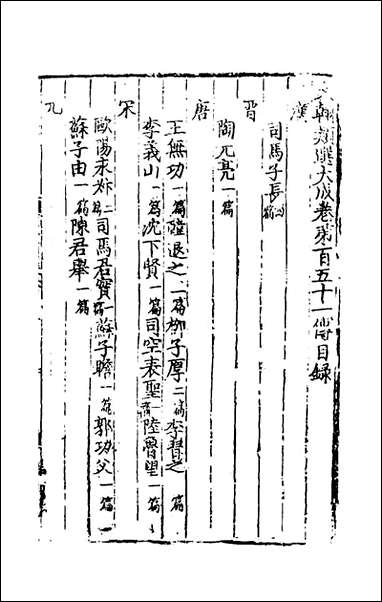 文翰類選大成卷第一百五十一傳目錄
漢
司馬子長
晉
陶元亮一篇
唐
王無功一篇韓退之一篇柳子厚二篇李習之一篇
李義山一篇沈下賢一篇司空表聖一篇陸魯望一篇
宋
歐陽永叔二篇司馬君實一篇蘇子瞻一篇郭功父一篇
蘇子由一篇陳君舉一篇
元